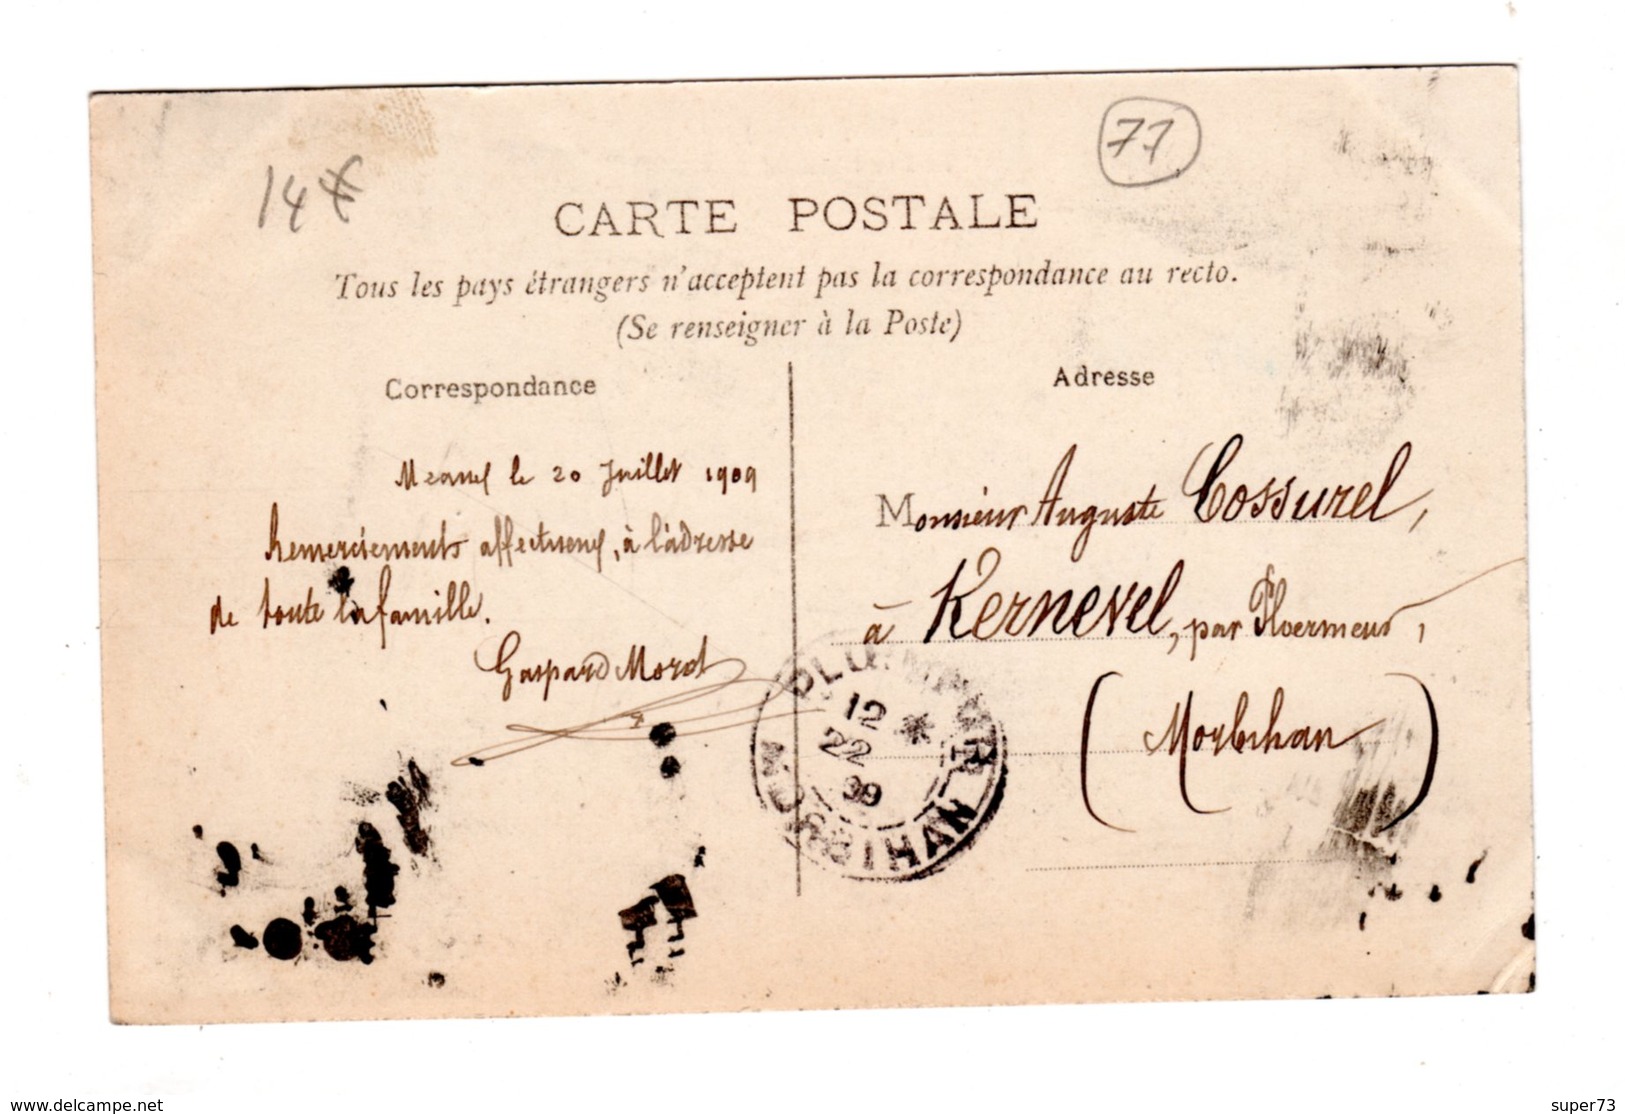 14€
77
CARTE POSTALE
Tous les pays étrangers n'acceptent pas la correspondance au recto.
(Se renseigner à la Poste)
Correspondance
Adresse
le 20 Juillet 1909
Remerciements affectueux, à l'adresse
de toute la famille.
Gaspard Morel
Monsieur Auguste Cossurel,
à Kernevel, par Ploermeur,
(Morbihan)
PLOEMEUR
12
22
09
MORBIHAN
www.delcampe.net
super73